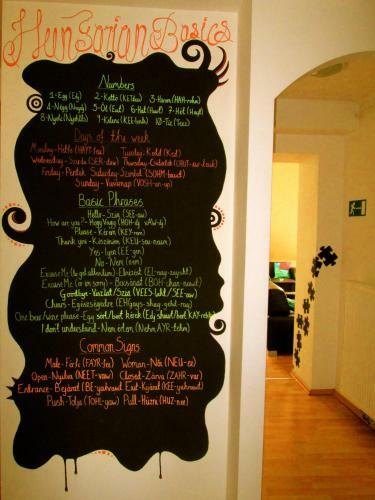 Hungarian Basics
Numbers
1-Egy (Edj) 2-Kettő (KETtew) 3-Három (HAH-rohm)
4-Négy (Naydj) 5-Öt (Eut) 6-Hat (Hawt) 7-Hét (Hayt)
8-Nyolc (Nyohlts) 9-Kilenc (KEE-lents) 10-Tíz (Teez)
Days of the week
Monday-Hétfő (HAYT-few) Tuesday-Kedd (Ked)
Wednesday-Szerda (SER-daw) Thursday-Csütörtök
Friday-Péntek Saturday-Szombat (SOHM-bawt)
Sunday-Vasárnap
Basic Phrases
Hello-Szia (SEE-aw)
How are you?-Hogy Vagy (HOH-dj VAW-dj)
Please-Kérem (KAY-rem)
Thank you-Köszönöm
Yes-Igen (EE-gen)
No-Nem (nem)
Excuse Me (to get attention)-Elnézést (EL-nay-zaysht)
Excuse Me (or im sorry)-Bocsánat (BOH-chah-nawt)
Goodbye-Viszlát/Szia (VEES-laht/SEE-aw)
Cheers-Egészségedre
One beer/wine please-Egy sört/bort kérek
I don't understand-Nem értem (Nehm AYR-tehm)
Common Signs
Male-Férfi (FAYR-fee) Woman-Női (NEU-ee)
Open-Nyitva (NEET-vaw) Closed-Zárva (ZAHR-vaw)
Entrance-Bejárat (BE-yahrawt) Exit-Kijárat (KEE-yahrawt)
Push-Tolja (TOHL-yaw) Pull-Húzni (HUZ-nee)